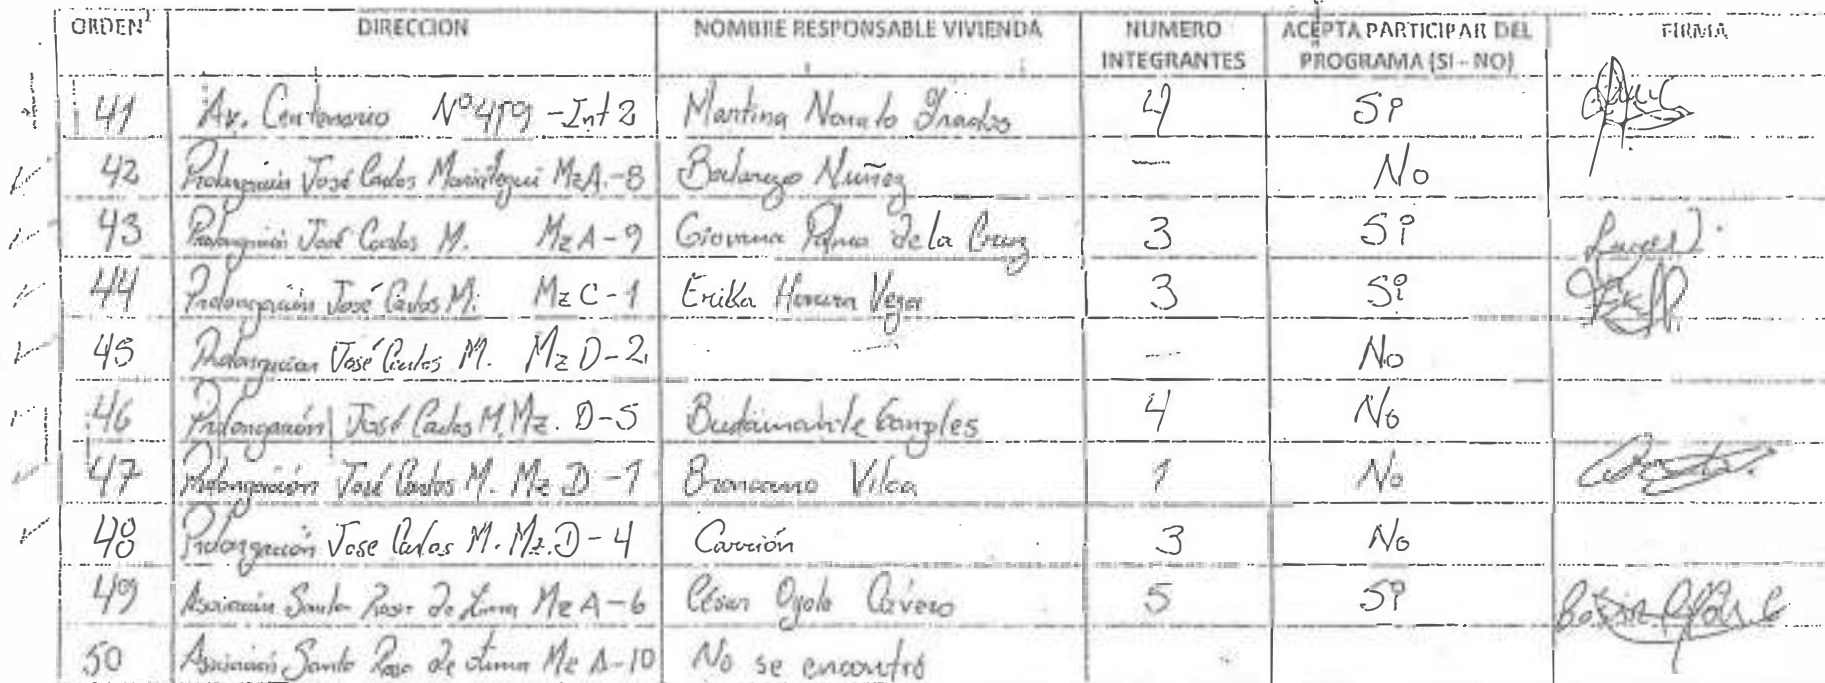 ORDEN DIRECCION NOMBRE RESPONSABLE VIVIENDA NUMERO INTEGRANTES ACEPTA PARTICIPAR DEL PROGRAMA (SI - NO) FIRMA
41 Av. Centenario Nº 459 - Int 2 Martina Nonato Grados 4 Si
42 Prolongación José Carlos Mariátegui Mz A.-8 Nuñez — No
43 Prolongación José Carlos M. Mz A-9 Giovana Palma de la Cruz 3 Si
44 Prolongación José Carlos M. Mz C-1 Erika Herrera Vega 3 Si
45 Prolongación José Carlos M. Mz D-2 — — No
46 Prolongación José Carlos M. Mz. D-5 4 No
47 Prolongación José Carlos M. Mz D-1 Vilca 1 No
48 Prolongación Jose Carlos M. Mz. D-4 Carrión 3 No
49 Asociación Santa Rosa de Lima Mz A-6 César Ogolo Cavero 5 Si
50 Asociación Santa Rosa de Lima Mz A-10 No se encontró